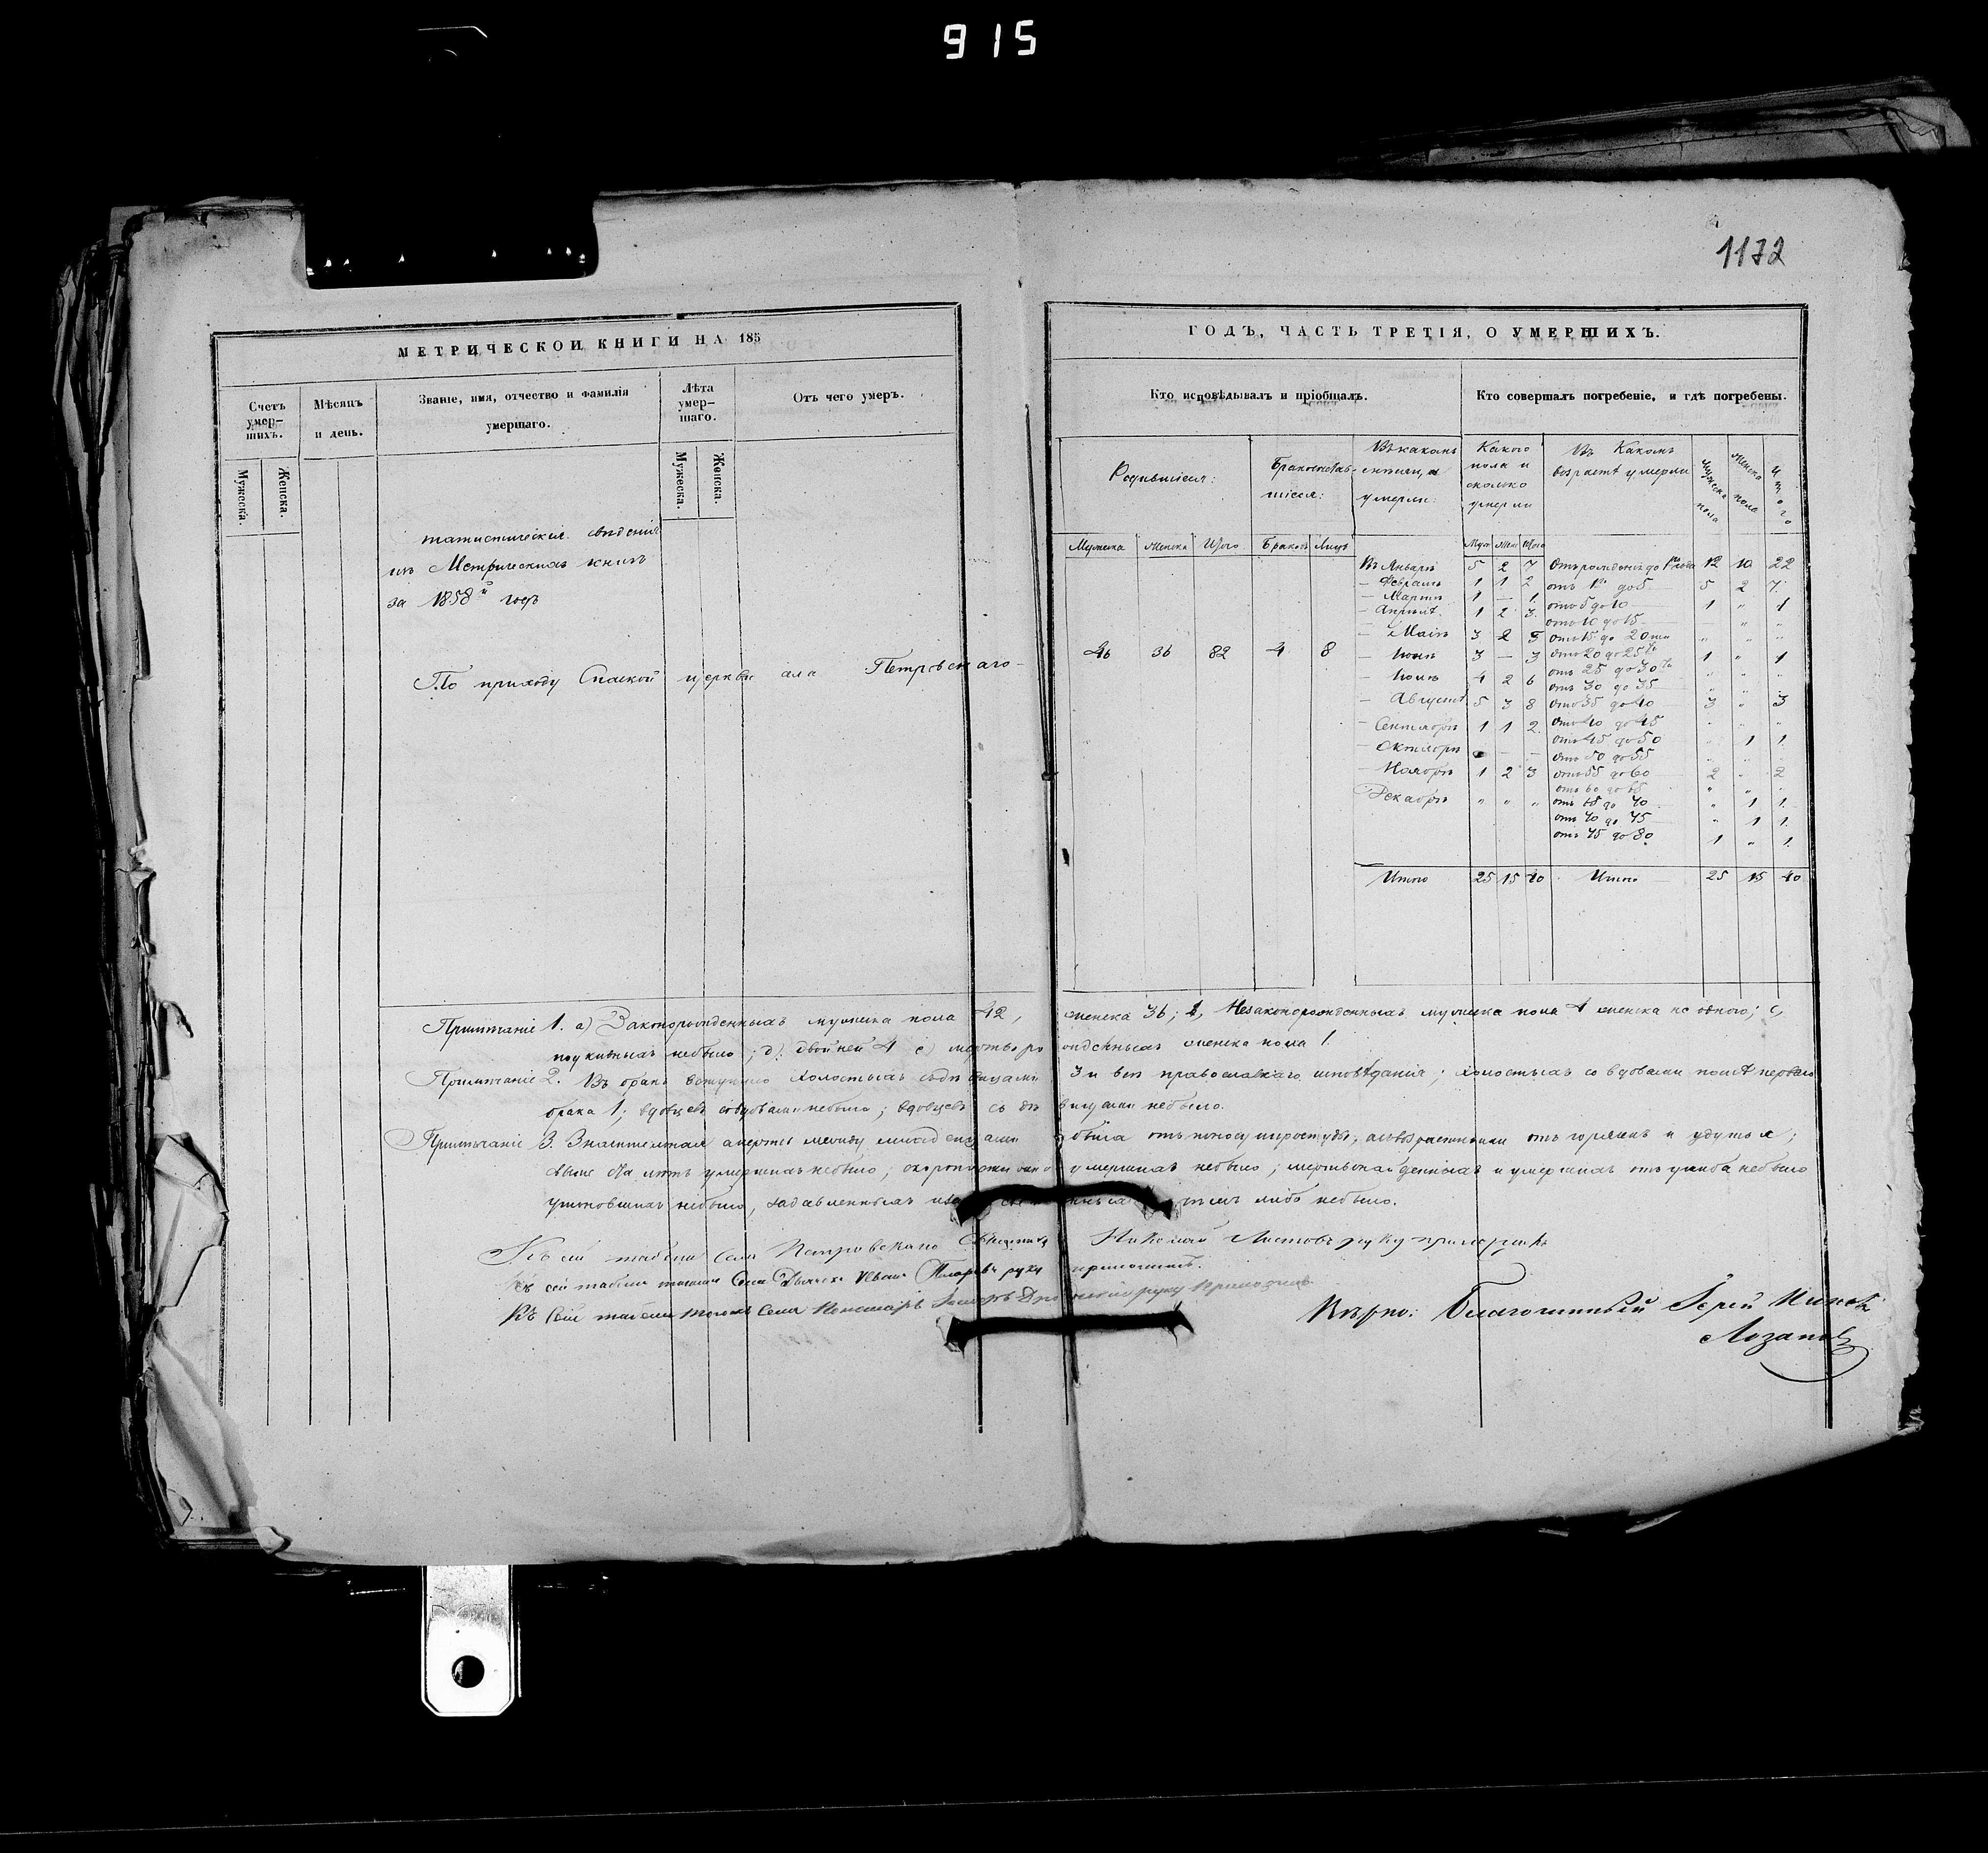 915
1172
МЕТРИЧЕСКОЙ КНИГИ НА 185
Счетъ умер-
шихъ.
Мѣсяцъ
и день.
Званіе, имя, отчество и фамилія
умершаго.
Лѣта
умер-
шаго.
Отъ чего умеръ.
Мужеска.
Женска.
Мужеска.
Женска.
татистическія свѣденія
изъ Метрическихъ книгъ
за 1858й годъ
По приходу Спаской церкви села Петровскаго
ГОДЪ, ЧАСТЬ ТРЕТІЯ, О УМЕРШИХЪ.
Кто исповѣдывалъ и пріобщалъ.
Кто совершалъ погребеніе, и гдѣ погребены.
Родившіеся:
Бракосочетав-
шіеся:
Въ какомъ
умерли:
Какого
пола и
сколько
умерли
Въ Какомъ
возрастѣ умерли
Мужеска пола
Женска пола
Итого
Мужеска Женска Итого Браковъ Лицъ
Муж Жен Итого
46 36 82 4 8
Въ Январѣ 5 2 7
Февралѣ 1 1 2
Мартѣ 1 — 1
Апрѣлѣ 1 2 3
Маіѣ 3 2 5
Іюнѣ 3 — 3
Іюлѣ 4 2 6
Августѣ 5 3 8
Сентябрѣ 1 1 2
Октябрѣ — —
Ноябрѣ 1 2 3
Декабрѣ " " "
Итого 25 15 40
Отъ рожденія до 1го года 12 10 22
отъ 1го до 5 5 2 7
отъ 5 до 10 1 " 1
отъ 10 до 15 — " "
отъ 15 до 20ти " " "
отъ 20 до 25ти 1 " 1
отъ 25 до 30ти " " "
отъ 30 до 35 " " "
отъ 35 до 40 3 " 3
отъ 40 до 45 " " "
отъ 45 до 50 " 1 1
отъ 50 до 55 " " "
отъ 55 до 60 2 " 2
отъ 60 до 65 " " "
отъ 65 до 70 " 1 1
отъ 70 до 75 " 1 1
отъ 75 до 80 1 " 1
Итого 25 15 40
Примѣчаніе 1. а) Законорожденныхъ мужеска пола 42, женска 36; Незаконорожденныхъ мужеска пола 4 женска не одного; с)
подкидныхъ небыло; д) двойней 4 е) мертворожденныхъ женска пола 1.
Примѣчаніе 2. Въ бракъ вступило холостыхъ съ дѣвицами 3 и всѣ православнаго исповѣданія; холостыхъ со вдовами послѣ перваго
брака 1; вдовцевъ со вдовами небыло; вдовцевъ съ дѣвицами небыло.
Примѣчаніе 3. Значительная смерть между младенцами была отъ поносу и простуды, а съ возрастными отъ горячекъ и удушья;
свыше ста лѣтъ умершихъ небыло; скоропостижно умершихъ небыло; мертвонайденныхъ и умершихъ отъ ушиба небыло
утоновшихъ небыло, задавленныхъ либо небыло.
Къ сей табели села Петровскаго Священникъ Николай Листовъ руку приложилъ
Къ сей табели тогоже Села Дьячекъ Иванъ руку приложилъ.
Къ Сей табели тогожъ Села Пономарь руку приложилъ
Вѣрно: Благочинный Іерей
Лозановъ